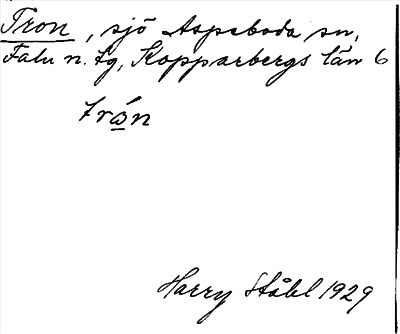 Tron, sjö Aspeboda sn,
Falu n. tg, Kopparbergs län 6
trón
Harry Ståhl 1929